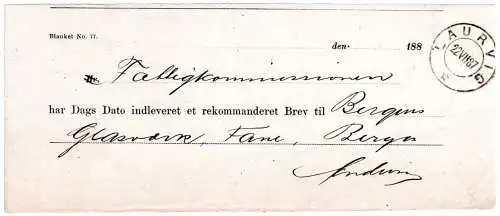 Blanket No. 77.
LAURVIG
22VII87
den 188
Fattigkommissionen
har Dags Dato indleveret et rekommanderet Brev til Bergens
Glasværk, Fane, Bergen